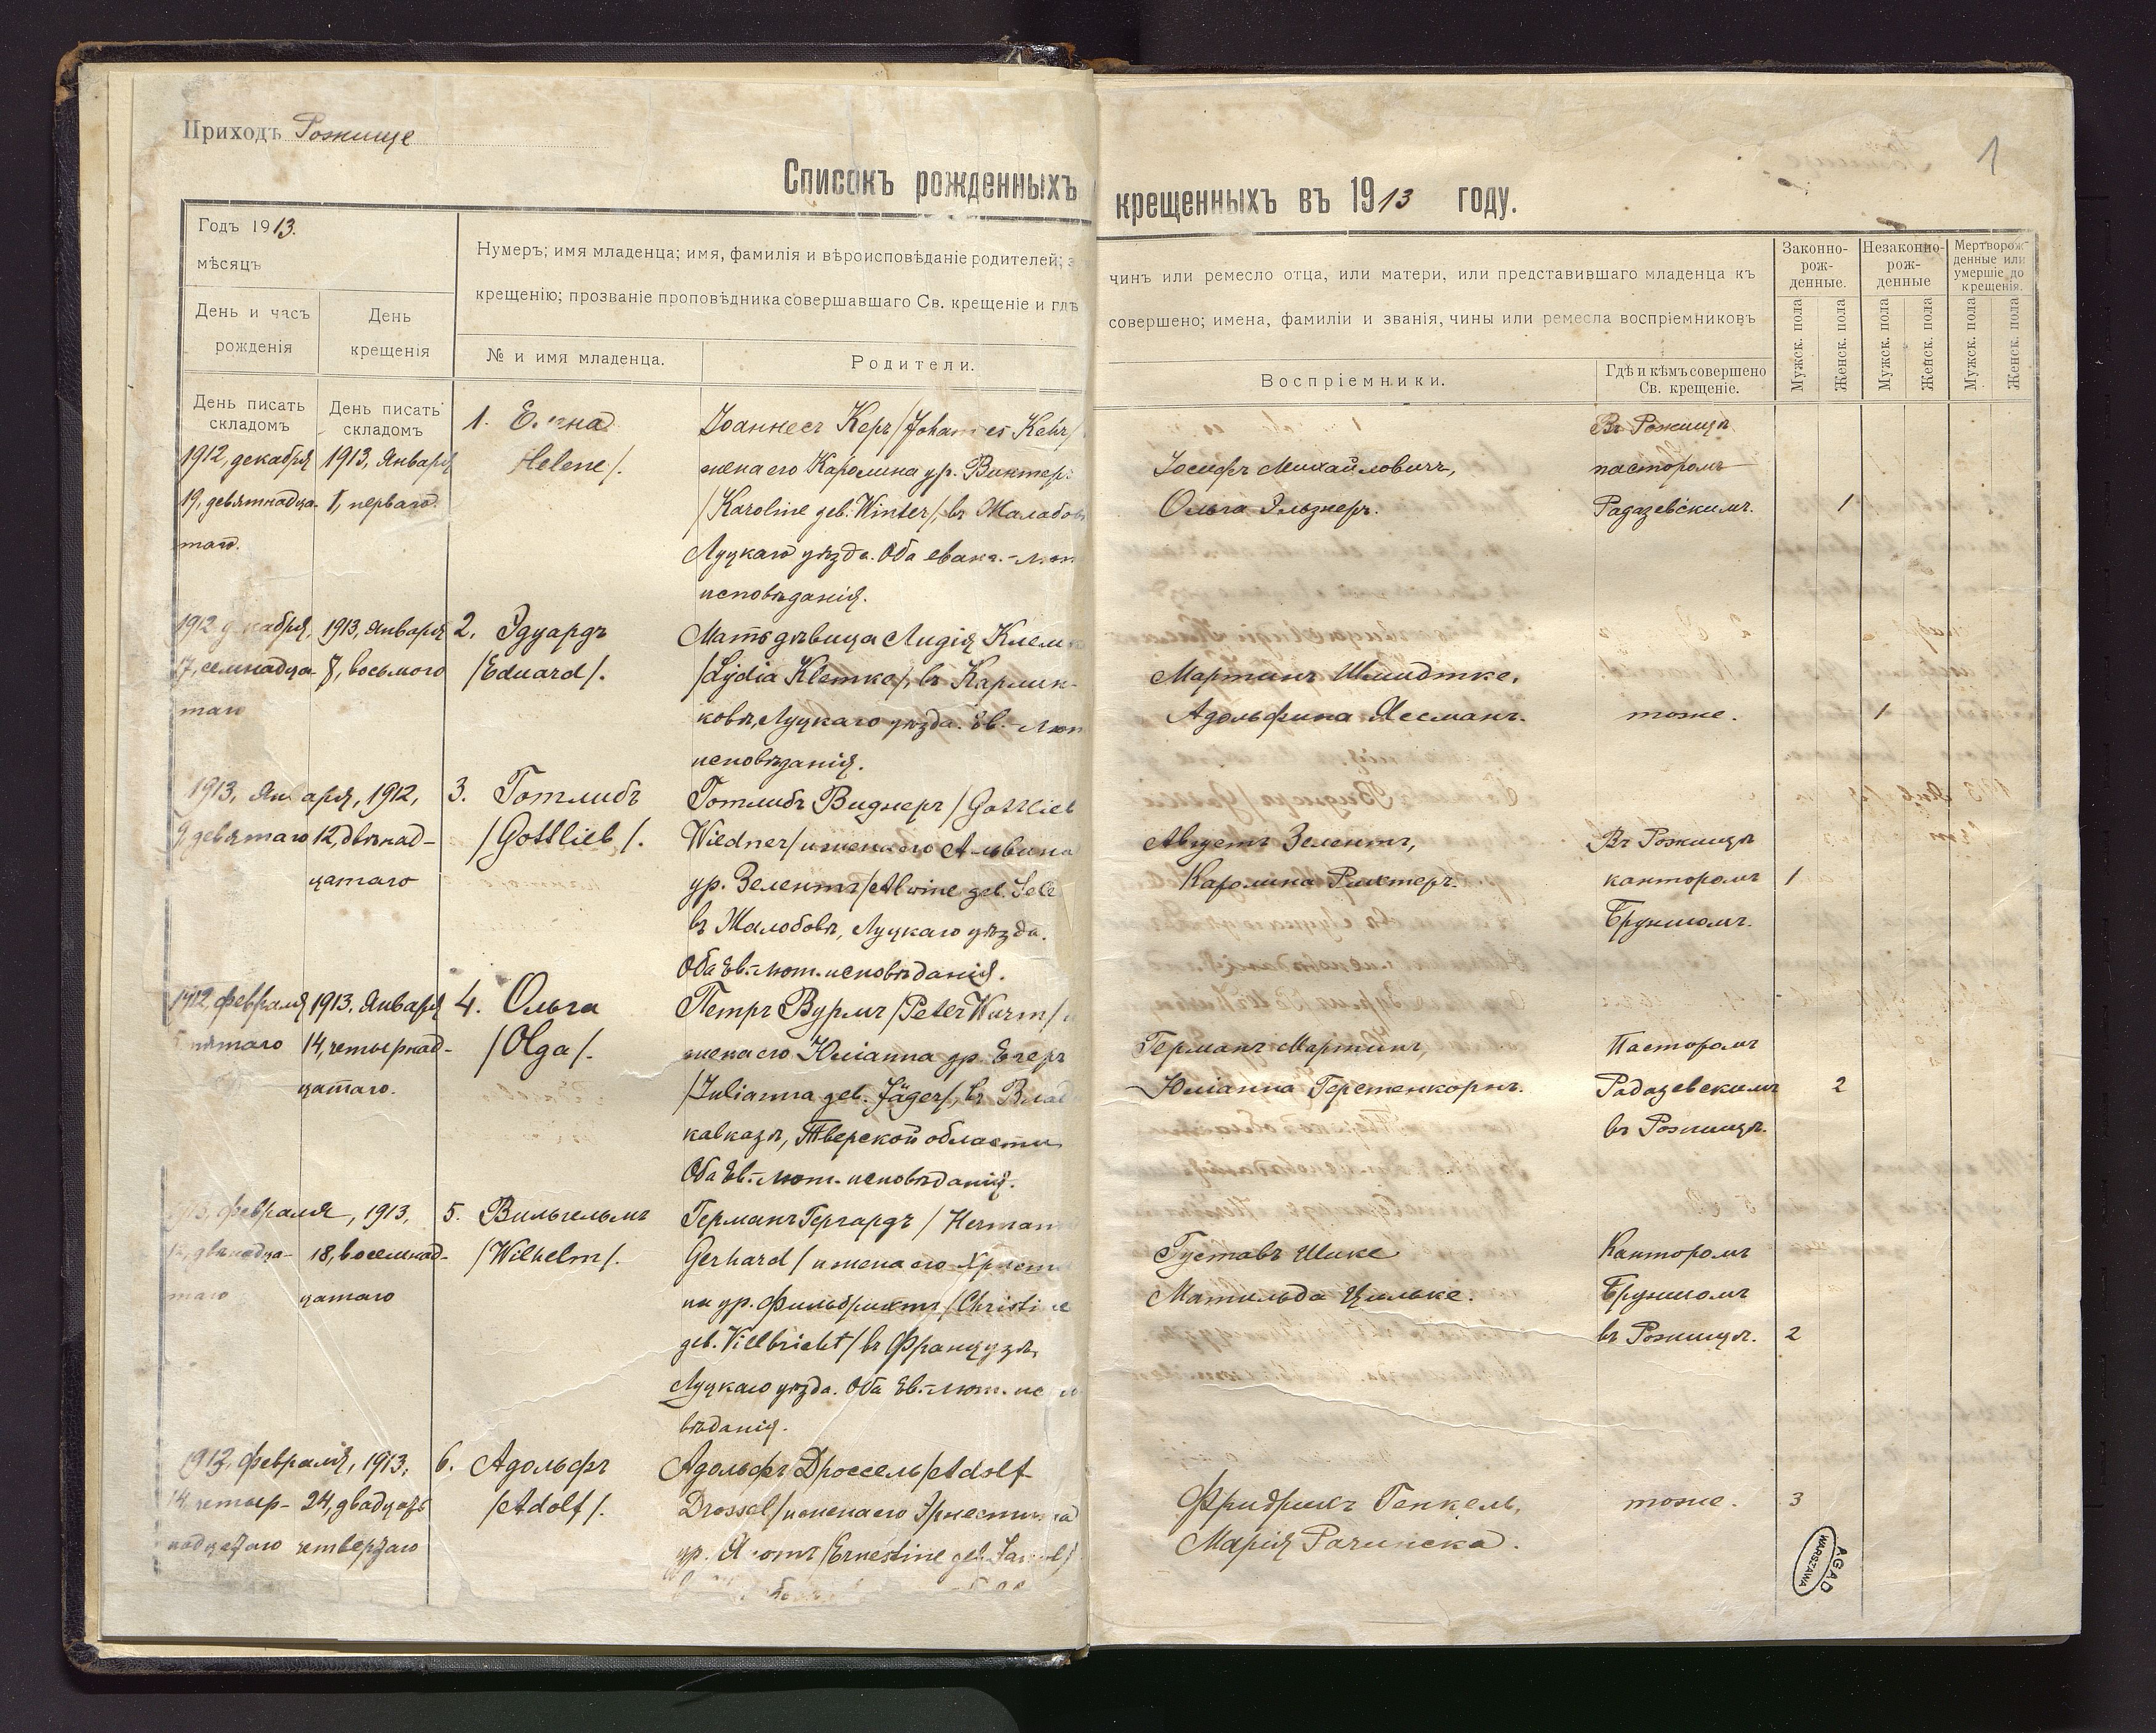 Приходъ Рожище
1
Списокъ рожденныхъ
крещенныхъ въ 1913 году.
Годъ 1913.
мѣсяцъ
День и часъ рожденія
День крещенія
День писать складомъ
День писать складомъ
Нумеръ; имя младенца; имя, фамилія и вѣроисповѣданіе родителей;
чинъ или ремесло отца, или матери, или представившаго младенца къ
крещенію; прозваніе проповѣдника совершавшаго Св. крещеніе и гдѣ
совершено; имена, фамиліи и званія, чины или ремесла воспріемниковъ
№ и имя младенца.
Родители.
Воспріемники.
Гдѣ и кѣмъ совершено
Св. крещеніе.
Законно-
рож-
денные.
Незаконно-
рож-
денные
Мертворож-
денные или
умершіе до
крещенія.
Мужск. пола
Женск. пола
Мужск. пола
Женск. пола
Мужск. пола
Женск. пола
1912, декабря
19, девятнадца-
таго.
1913, Января
1, перваго.
1.
Helene/.
Іоаннесъ Керъ /Johannes Kehr/
жена его Каролина ур. Винтеръ
/Karoline geb. Winter/, въ Жалобов
Луцкаго уѣзда. Оба еванг.-лют
исповѣданія.
Іосифъ Михайловичъ,
Ольга Эльзнеръ.
Въ Рожищѣ
пасторомъ
Радазевскимъ.
1
1912 декабря,
17, семнадца-
таго
1913, Января
8, восьмого
2. Эдуардъ
/Eduard/.
Мать дѣвица Лидія Клемк
/Lydia Klemke/, въ Карлин-
ковѣ, Луцкаго уѣзда. Ев.-Лют
исповѣданія.
Мартинъ Шмидтке,
Адольфина Яесманъ.
тоже.
1
1913, Января, 1912,
9, девятаго
12, двѣнад-
цатаго
3. Готлибъ
/Gottlieb/.
Готлибъ Виднеръ /Gottlieb
Wiedner/ и жена его Альвина
ур. Зелентъ /Alwine geb. Sele
въ Жалобовѣ, Луцкаго уѣзда.
Оба Ев.-лют. исповѣданія.
Августъ Зелентъ,
Каролина Рихтеръ.
Въ Рожищѣ
канторомъ
Брунномъ.
1
1912, февраля
5 пятаго
1913, Января
14, четырнад-
цатаго.
4. Ольга
/Olga/.
Петръ Вурмъ /Peter Wurm/
жена его Юліанна ур. Егеръ
/Julianna geb. Jäger/, въ Влад
кавказѣ, Тверской области
Оба Ев.-лют. исповѣданія.
Германъ Мартинъ,
Юліанна Герстенкорнъ.
Пасторомъ
Радазевскимъ
въ Рожищѣ.
2
1913, февраля, 1913,
12, двѣнадца-
таго
18, восемнад-
цатаго
5. Вильгельмъ
/Wilhelm/.
Германъ Гергардъ /Herman
Gerhard/ и жена его Христи
на ур. Фильбрихтъ /Christine
geb. Villbricht/ въ Французѣ,
Луцкаго уѣзда. Оба Ев.-лют. испо
вѣданія.
Густавъ Шике
Матильда Цильке.
Канторомъ
Брунномъ
въ Рожищѣ.
2
1913, февраля, 1913,
14, четыр-
надцатаго
24, двадцать
четвертаго
6. Адольфъ
/Adolf/.
Адольфъ Дроссель /Adolf
Drossel/ и жена его Эрнестина
ур. /Ernestine geb.
Фридрихъ Генкель,
Марія Рачинска.
тоже.
3
AGAD
WARSZAWA